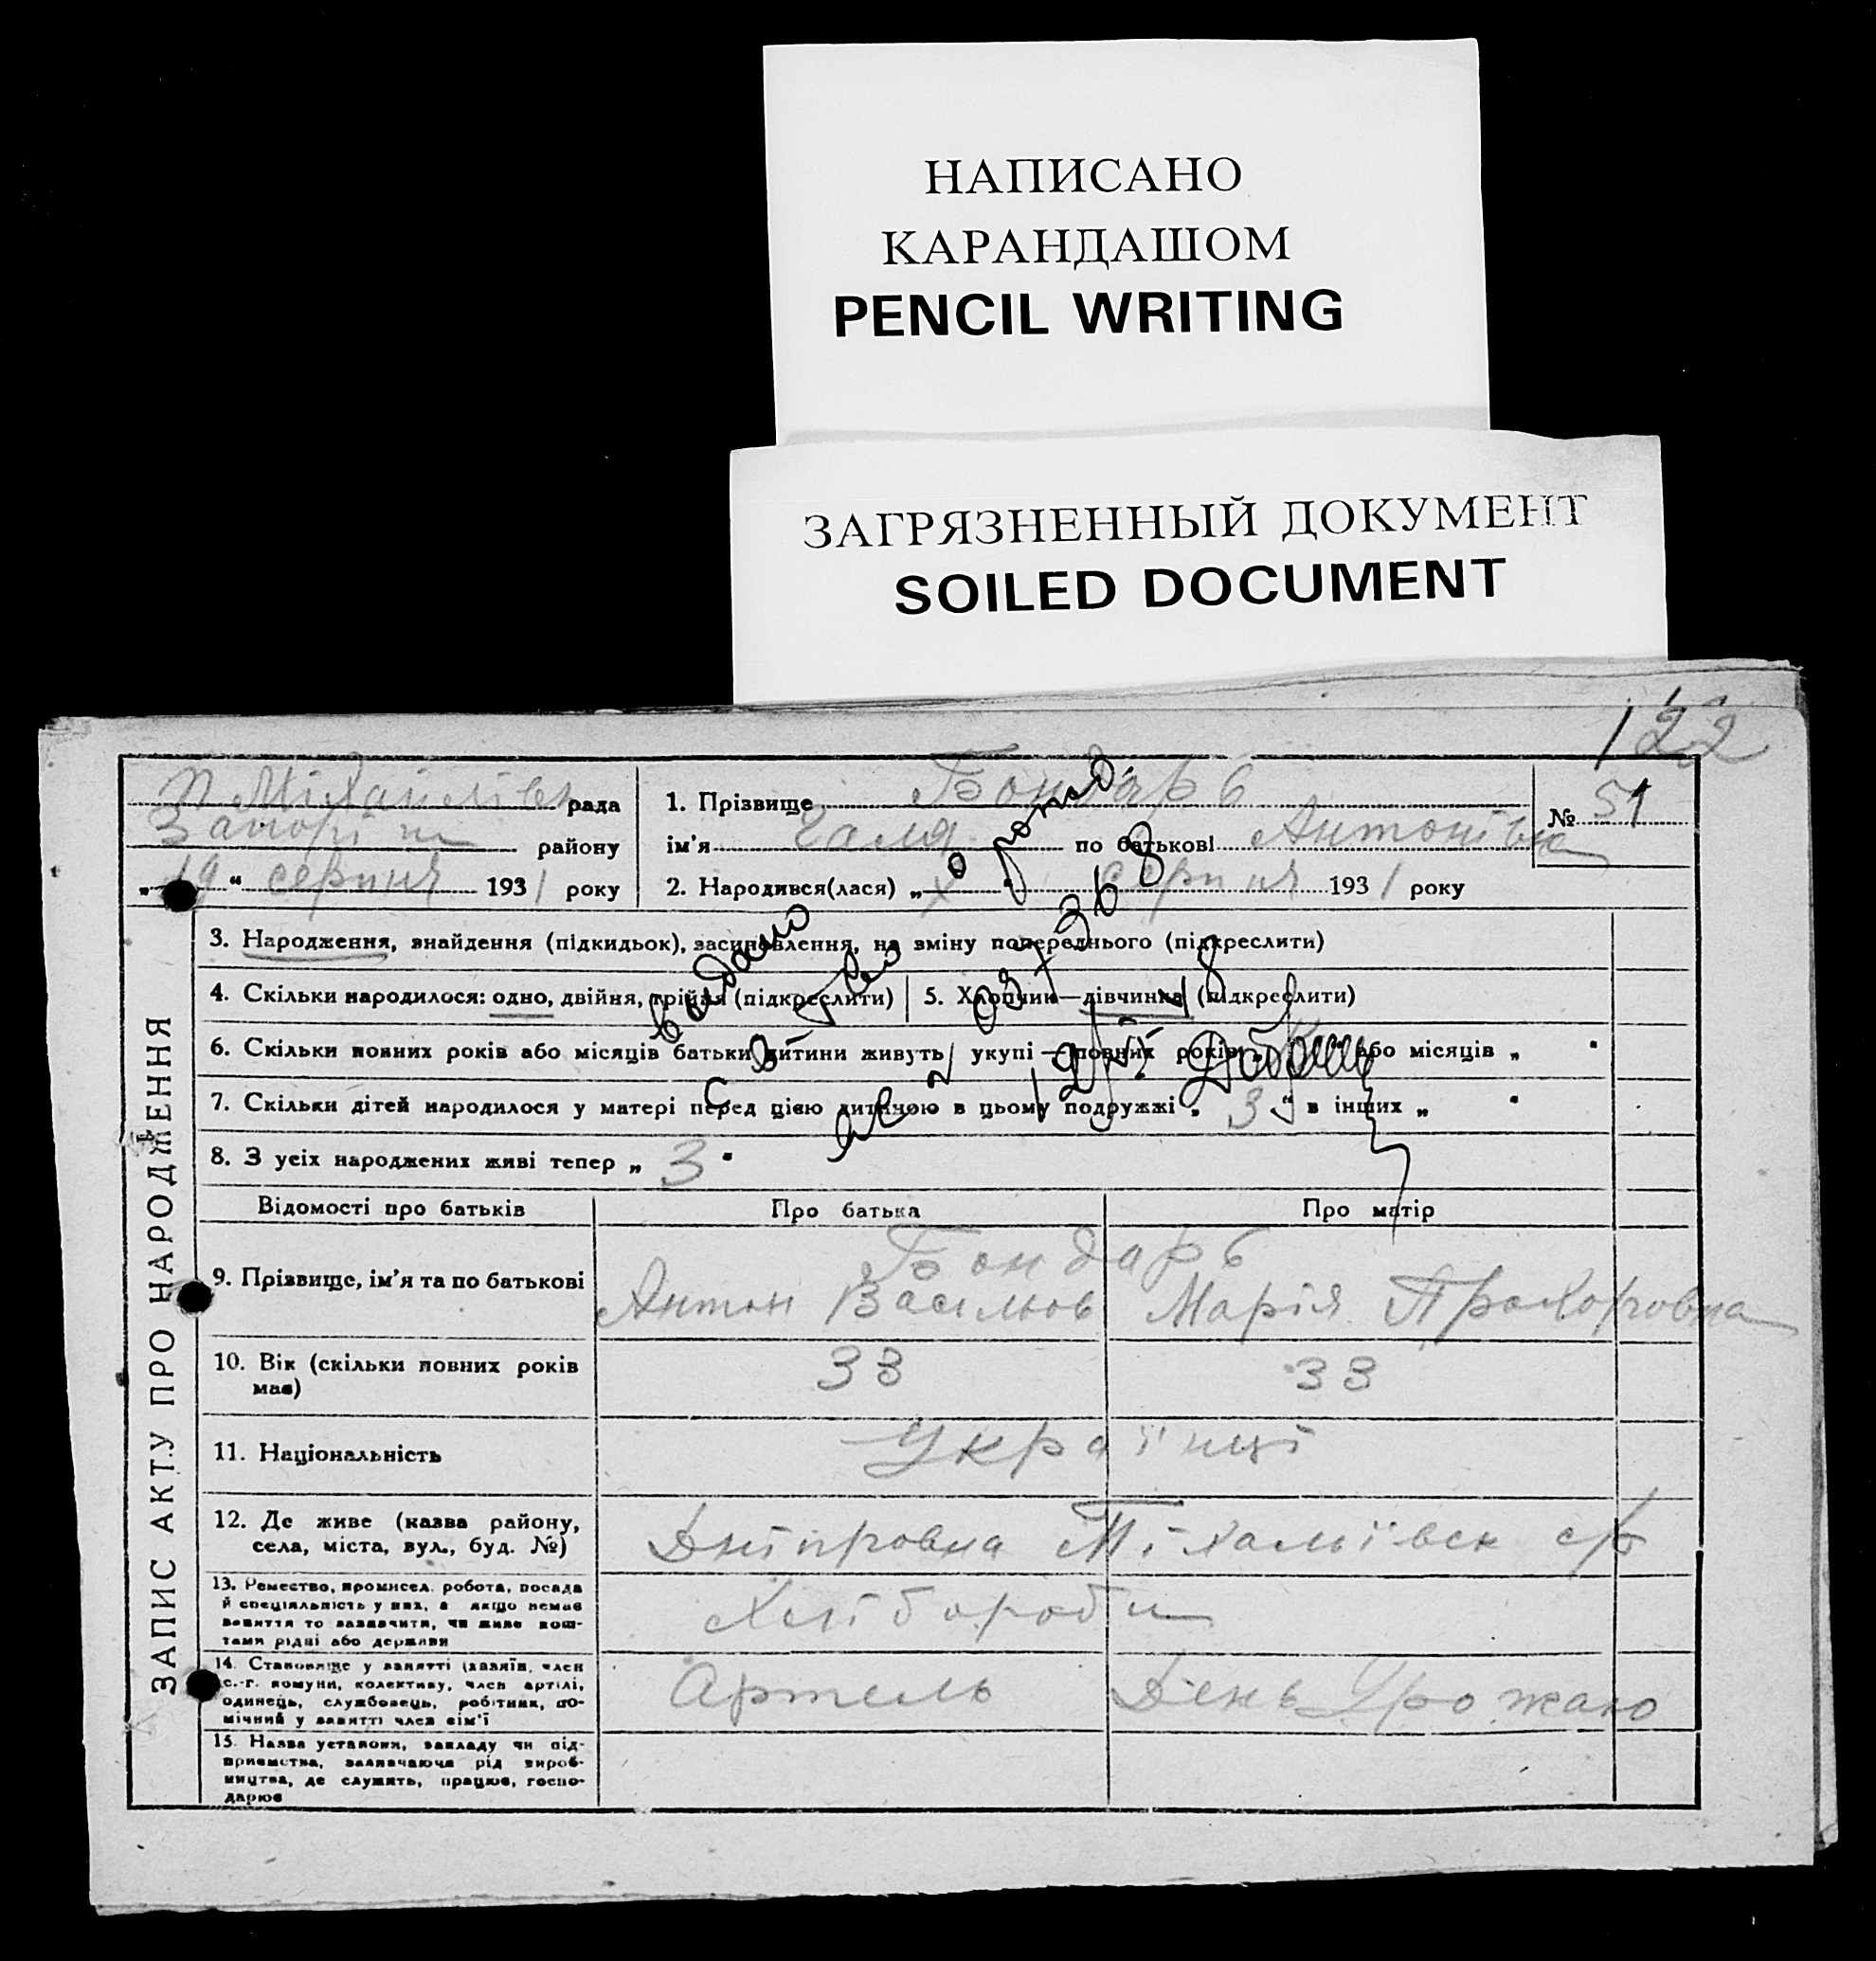 НАПИСАНО
КАРАНДАШОМ
PENCIL WRITING
ЗАГРЯЗНЕННЫЙ ДОКУМЕНТ
SOILED DOCUMENT
122
рада
району
„19“ серпня 1931 року
1. Прізвище Бондарь
ім'я Галя по батькові Антонівна
2. Народився(лася) „ серпня 1931 року
№ 51
ЗАПИС АКТУ ПРО НАРОДЖЕННЯ
3. Народження, знайдення (підкидьок), засиновлення, на зміну попереднього (підкреслити)
4. Скільки народилося: одно, двійня, трійня (підкреслити) 5. Хлопчик—дівчинка (підкреслити)
6. Скільки повних років або місяців батьки дитини живуть укупі — повних років „ або місяців „ “
7. Скільки дітей народилося у матері перед цією дитиною в цьому подружжі „3“ в інших „ “
8. З усіх народжених живі тепер „3“
видано
Відомості про батьків Про батька Про матір
9. Прізвище, ім'я та по батькові
Бондарь
Антон Васильов Марія Прохоровна
10. Вік (скільки повних років має) 33 33
11. Національність Українці
12. Де живе (назва району, села, міста, вул., буд. №)
Дніпровка
13. Ремество, промисел, робота, посада й спеціяльність у них, а якщо немає заняття то зазначити, чи живе коштами рідні або держави
Хлібороби
14. Становище у занятті (хазяїн, член с.-г. комуни, колективу, член артілі, одинець, службовець, робітник, помічний у занятті член сім'ї
Артель День Урожаю
15. Назва установи, закладу чи підприємства, зазначаючи рід виробництва, де служить, працює, господарює